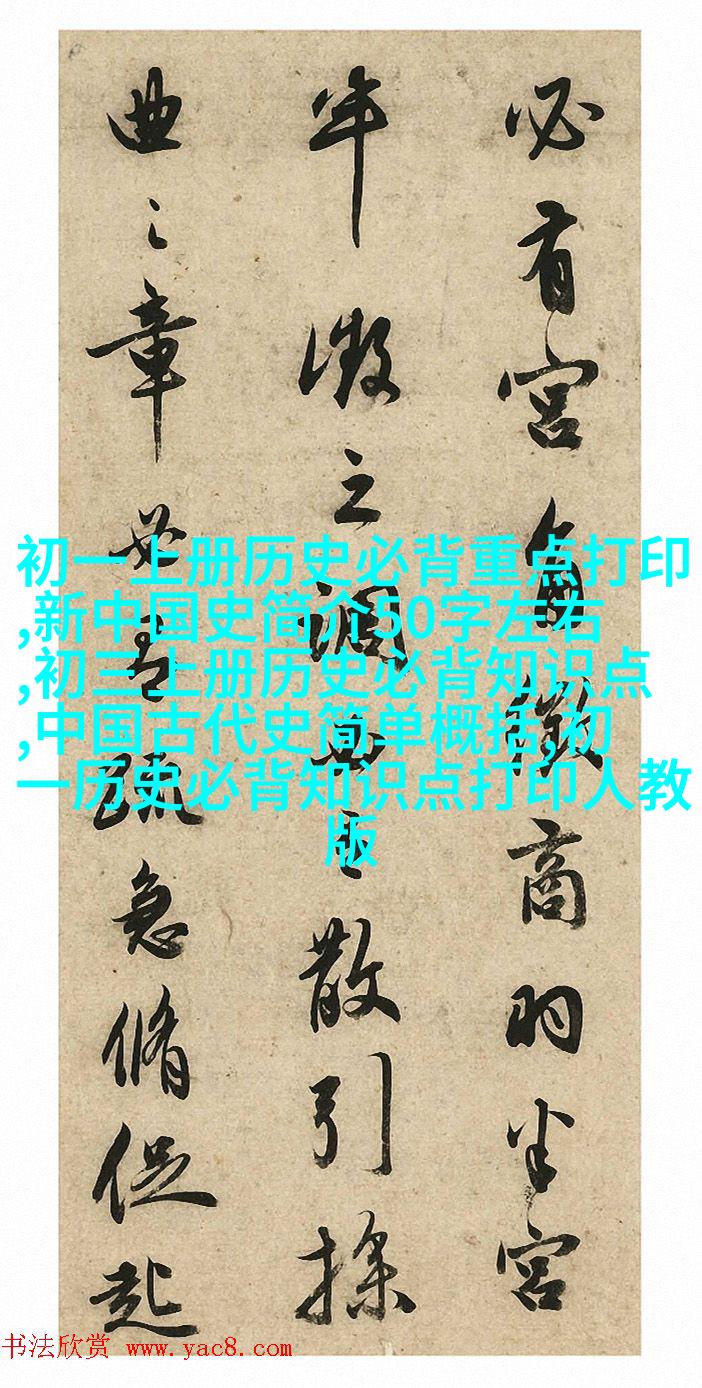 初一上册历史必背重点打印
,新中国史简介50字左右
,初三上册历史必背知识点
,中国古代史简单概括,初
一历史必背知识点打印人教
版
必有宮角徵商羽半宮
半徵之調之散引操
曲之章有疏急脩促起
书法欣赏 www.yac8.com